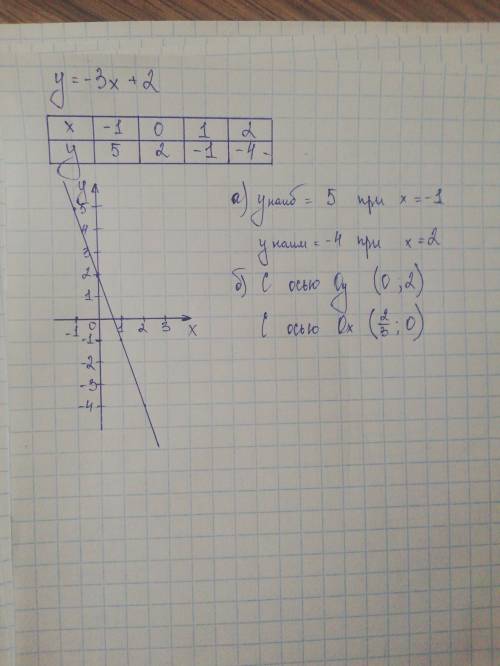 y = -3x + 2
x -1 0 1 2
y 5 2 -1 -4
а) yнаиб = 5 при x = -1
yнаим = -4 при x = 2
б) С осью Oy (0 ; 2)
С осью Ox (2/3 ; 0)
y
5
4
3
2
1
-1 0 1 2 3 x
-1
-2
-3
-4